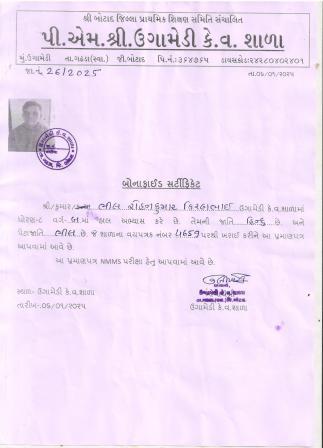 શ્રી બોટાદ જિલ્લા પ્રાથમિક શિક્ષણ સમિતિ સંચાલિત
પી.એમ.શ્રી.ઉગામેડી કે.વ. શાળા
મુ.ઉગામેડી તા.ગઢડા(સ્વા.) જી.બોટાદ પિ.નં.:૩૬૪૭૬૫ ડાયસકોડ:૨૪૨૮૦૪૦૨૪૦૧
જા.નં. 26/2025 તા.૦૬/૦૧/૨૦૨૫
બોનાફાઈડ સર્ટીફિકેટ
શ્રી/કુમાર/ ભીલ રોહનકુમાર ઉગામેડી કે.વ.શાળામાં
ધોરણ-૮ વર્ગ- માં હાલ અભ્યાસ કરે છે. તેમની જાતિ હિન્દુ છે. અને
પેટાજાતિ ભીલ છે. જે શાળાના વયપત્રક નંબર 4659 પરથી ખરાઈ કરીને આ પ્રમાણપત્ર
આપવામાં આવે છે.
આ પ્રમાણપત્ર NMMS પરીક્ષા હેતુ આપવામાં આવે છે.
સ્થળ:- ઉગામેડી કે.વ.શાળા
તારીખ:-૦૬/૦૧/૨૦૨૫ ઉગામેડી કે.વ.શાળા